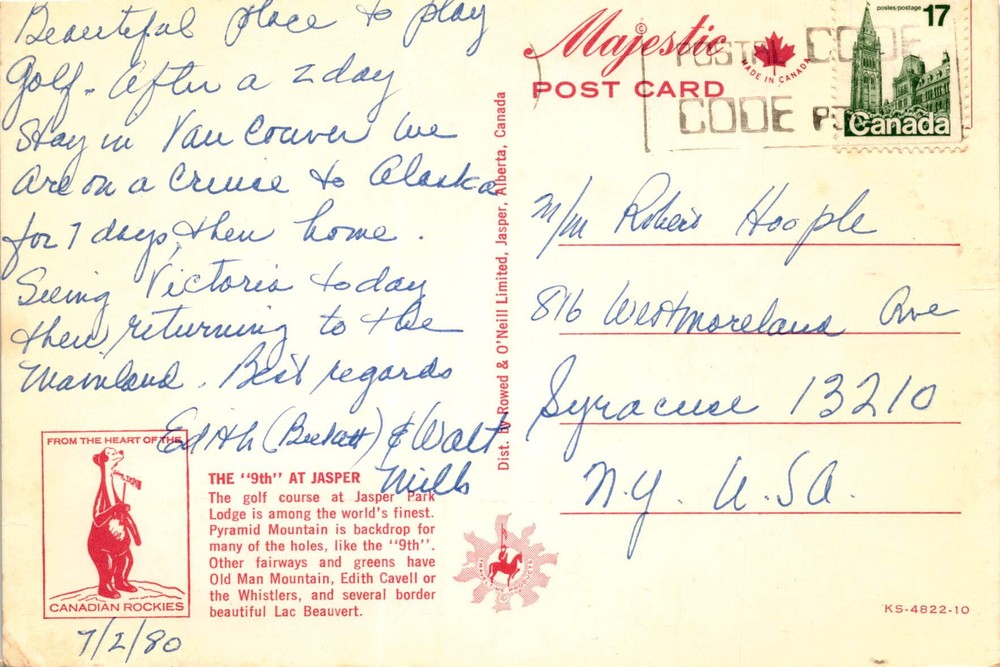 Beautiful place to play
Golf. After a 2 day
Stay in Van Couver we
are on a Cruise to Alaska
for 7 days, then home.
Seeing Victoria today
then returning to the
Mainland. Best regards
Edith (Beckett) & Walt
Mills
FROM THE HEART OF THE
CANADIAN ROCKIES
7/2/80
THE "9th" AT JASPER
The golf course at Jasper Park
Lodge is among the world's finest.
Pyramid Mountain is backdrop for
many of the holes, like the "9th".
Other fairways and greens have
Old Man Mountain, Edith Cavell or
the Whistlers, and several border
beautiful Lac Beauvert.
Dist. by Rowed & O'Neill Limited, Jasper, Alberta, Canada
Majestic
POST CARD
MADE IN CANADA
POSTAL CODE
CODE
postes/postage 17
Canada
M/M Robert Hoople
816 Westmoreland Ave
Syracuse 13210
N.Y. U.S.A.
KS-4822-10